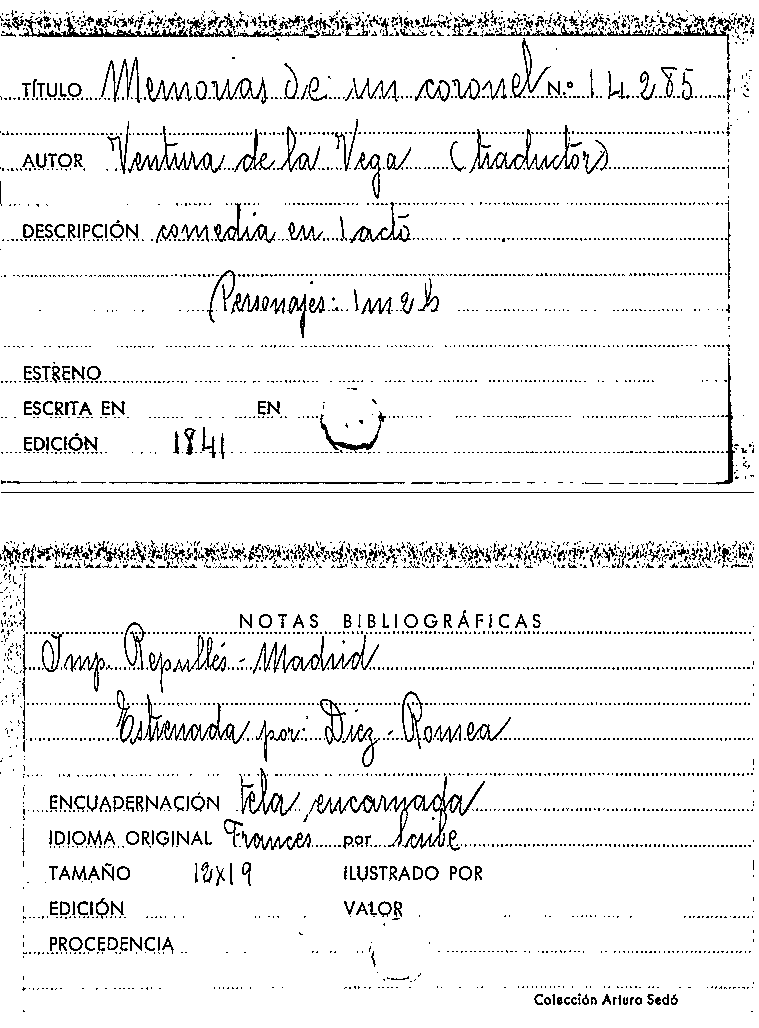 TÍTULO Memorias de un coronel N.º 14.285
AUTOR Ventura de la Vega (traductor)
DESCRIPCIÓN comedia en 1 acto
Personajes: 1m 2h
ESTRENO
ESCRITA EN EN
EDICIÓN 1841
NOTAS BIBLIOGRÁFICAS
Imp. Repullés - Madrid
Estrenada por: Díez - Romea
ENCUADERNACIÓN tela encarnada
IDIOMA ORIGINAL Frances por Scribe
TAMAÑO 12x19 ILUSTRADO POR
EDICIÓN VALOR
PROCEDENCIA
Colección Arturo Sedó